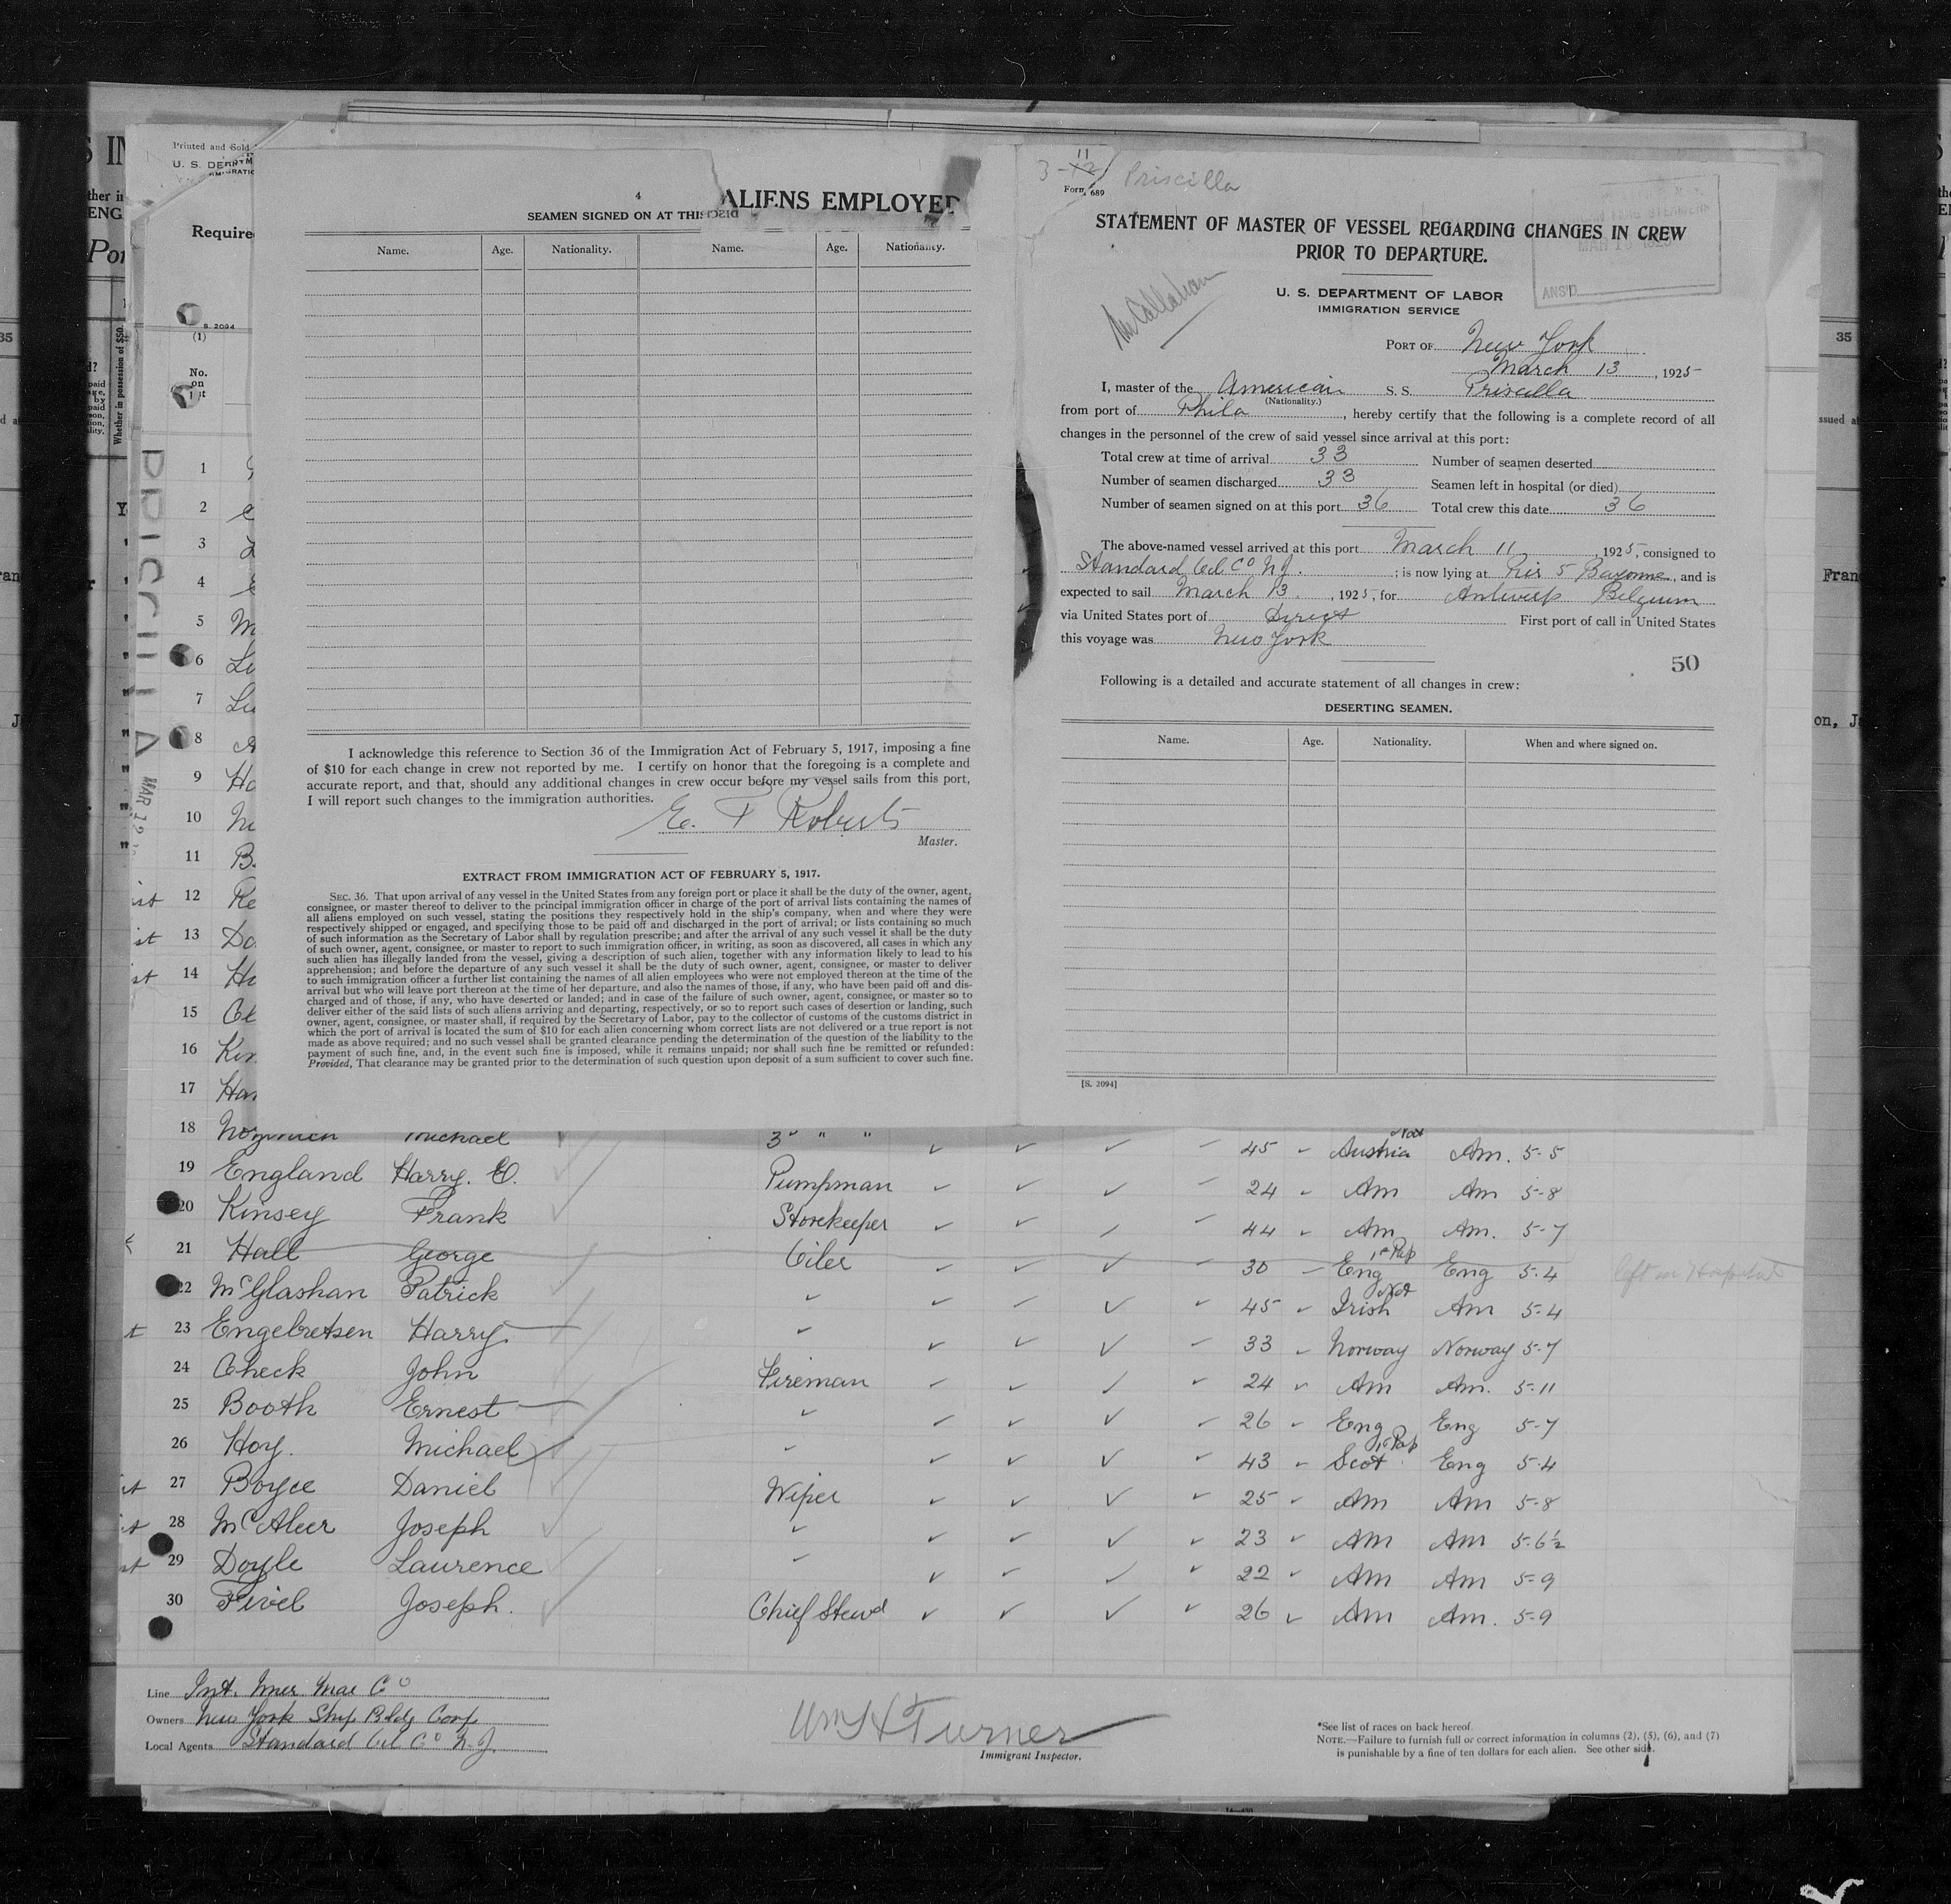 Printed and Sold
U. S. DEPARTM
IMMIGRATIO
Require
S. 2094
(1)
No.
on
list
PRISCILLA
MAR 12
4
ALIENS EMPLOYED
SEAMEN SIGNED ON AT THIS
Name. Age. Nationality. Name. Age. Nationality.
I acknowledge this reference to Section 36 of the Immigration Act of February 5, 1917, imposing a fine
of $10 for each change in crew not reported by me. I certify on honor that the foregoing is a complete and
accurate report, and that, should any additional changes in crew occur before my vessel sails from this port,
I will report such changes to the immigration authorities.
E. F Roberts
Master.
EXTRACT FROM IMMIGRATION ACT OF FEBRUARY 5, 1917.
SEC. 36. That upon arrival of any vessel in the United States from any foreign port or place it shall be the duty of the owner, agent,
consignee, or master thereof to deliver to the principal immigration officer in charge of the port of arrival lists containing the names of
all aliens employed on such vessel, stating the positions they respectively hold in the ship's company, when and where they were
respectively shipped or engaged, and specifying those to be paid off and discharged in the port of arrival; or lists containing so much
of such information as the Secretary of Labor shall by regulation prescribe; and after the arrival of any such vessel it shall be the duty
of such owner, agent, consignee, or master to report to such immigration officer, in writing, as soon as discovered, all cases in which any
such alien has illegally landed from the vessel, giving a description of such alien, together with any information likely to lead to his
apprehension; and before the departure of any such vessel it shall be the duty of such owner, agent, consignee, or master to deliver
to such immigration officer a further list containing the names of all alien employees who were not employed thereon at the time of the
arrival but who will leave port thereon at the time of her departure, and also the names of those, if any, who have been paid off and dis-
charged and of those, if any, who have deserted or landed; and in case of the failure of such owner, agent, consignee, or master so to
deliver either of the said lists of such aliens arriving and departing, respectively, or so to report such cases of desertion or landing, such
owner, agent, consignee, or master shall, if required by the Secretary of Labor, pay to the collector of customs of the customs district in
which the port of arrival is located the sum of $10 for each alien concerning whom correct lists are not delivered or a true report is not
made as above required; and no such vessel shall be granted clearance pending the determination of the question of the liability to the
payment of such fine, and, in the event such fine is imposed, while it remains unpaid; nor shall such fine be remitted or refunded:
Provided, That clearance may be granted prior to the determination of such question upon deposit of a sum sufficient to cover such fine.
3-12 11 Priscilla
Form 689
STATEMENT OF MASTER OF VESSEL REGARDING CHANGES IN CREW
PRIOR TO DEPARTURE.
U. S. DEPARTMENT OF LABOR
IMMIGRATION SERVICE
ANS'D
McCallahan
PORT OF New York
March 13, 1925
I, master of the American S. S. Priscilla
(Nationality.)
from port of Phila, hereby certify that the following is a complete record of all
changes in the personnel of the crew of said vessel since arrival at this port:
Total crew at time of arrival 33 Number of seamen deserted
Number of seamen discharged 33 Seamen left in hospital (or died)
Number of seamen signed on at this port 36 Total crew this date 36
The above-named vessel arrived at this port March 11, 1925, consigned to
Standard Oil Co N.J.; is now lying at Pier 5 Bayonne, and is
expected to sail March 13, 1925, for Antwerp Belgium
via United States port of Direct First port of call in United States
this voyage was New York
50
Following is a detailed and accurate statement of all changes in crew:
DESERTING SEAMEN.
Name. Age. Nationality. When and where signed on.
[S. 2094]
1
2
3
4
5
6
7
8
9
10
11
12
13
14
15
16
17
18 Michael 3" " " 45 Austria Nat Am. 5-5
19 England Harry. E. Pumpman 24 Am Am 5-8
20 Kinsey Frank Storekeeper 44 Am Am. 5-7
21 Hall George Oiler 30 Eng 1st Pap Eng 5.4 left in Hospital
22 McGlashan Patrick " 45 Irish Nat Am 5-4
23 Engebretsen Harry " 33 Norway Norway 5-7
24 Check John Fireman 24 Am Am. 5-11
25 Booth Ernest " 26 Eng Eng 5-7
26 Hoy. Michael " 43 Scot 1st Pap Eng 5.4
27 Boyce Daniel Wiper 25 Am Am 5-8
28 McAleer Joseph " 23 Am Am 5-6½
29 Doyle Laurence " 22 Am Am 5-9
30 Fivel Joseph. Chief Stewd 26 Am Am. 5-9
Line Int. Mer Mar Co
Owners New York Ship Bldg Corp
Local Agents Standard Oil Co N.J.
Wm H Turner
Immigrant Inspector.
*See list of races on back hereof.
NOTE.—Failure to furnish full or correct information in columns (2), (5), (6), and (7)
is punishable by a fine of ten dollars for each alien. See other side.